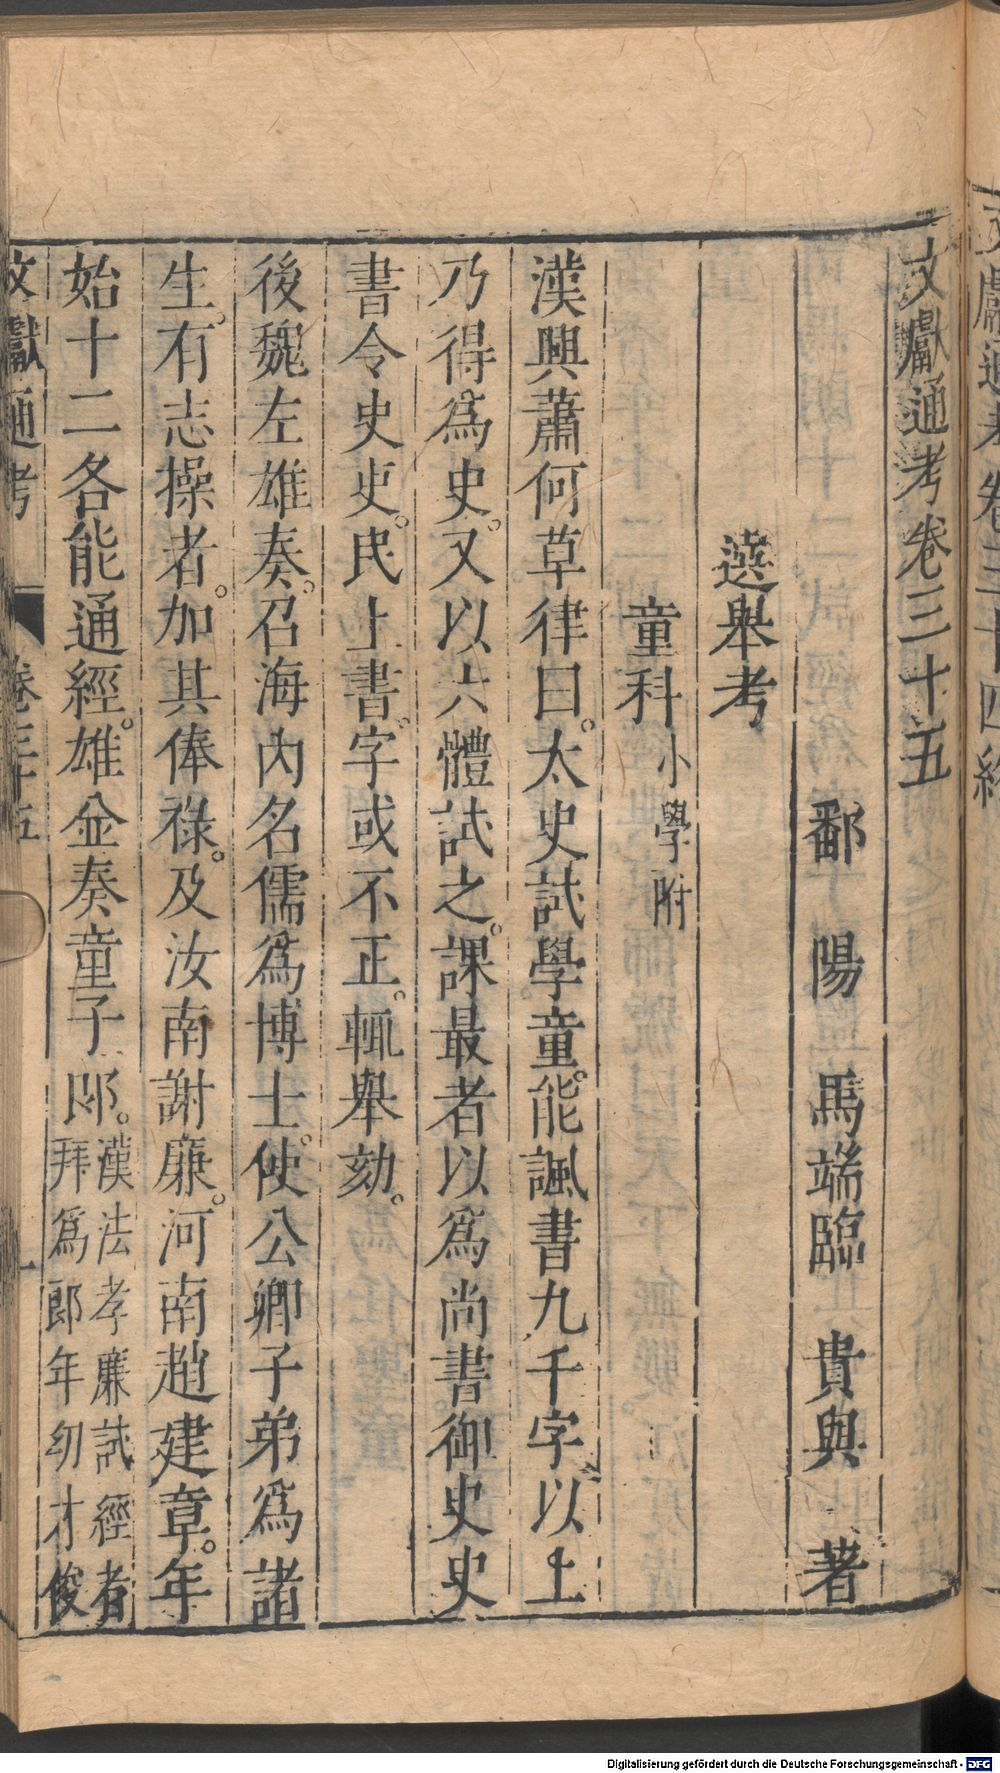 文獻通考卷三十五
鄱陽馬端臨貴與著
選舉考
童科小學附
漢興蕭何草律曰。太史試學童。能諷書九千字以上
乃得為史。又以六體試之。課最者以為尚書御史史
書令史史。吏民上書。字或不正。輒舉劾。
後魏左雄奏。召海內名儒為博士。使公卿子弟為諸
生。有志操者。加其俸祿。及汝南謝廉。河南趙建章。年
始十二各能通經。雄並奏童子郎。漢法孝廉試經者
拜為郎年幼才俊
文獻通考 卷三十五 一
Digitalisierung gefördert durch die Deutsche Forschungsgemeinschaft - DFG